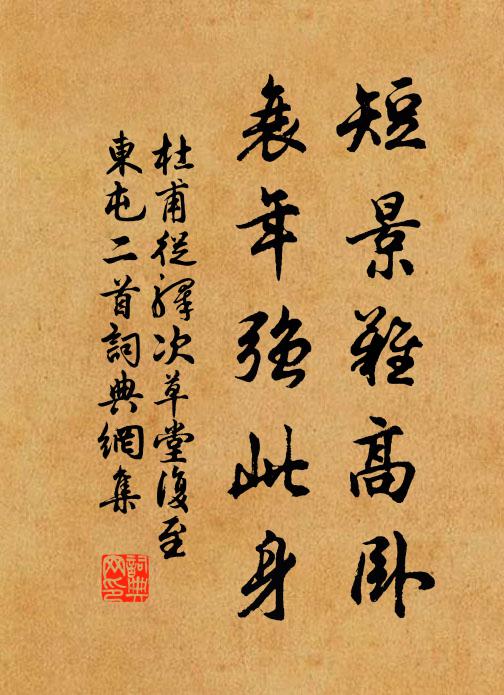 短景難高臥
衰年強此身
杜甫從驛次草堂復至
東屯二首詞典網集
詞典
网印